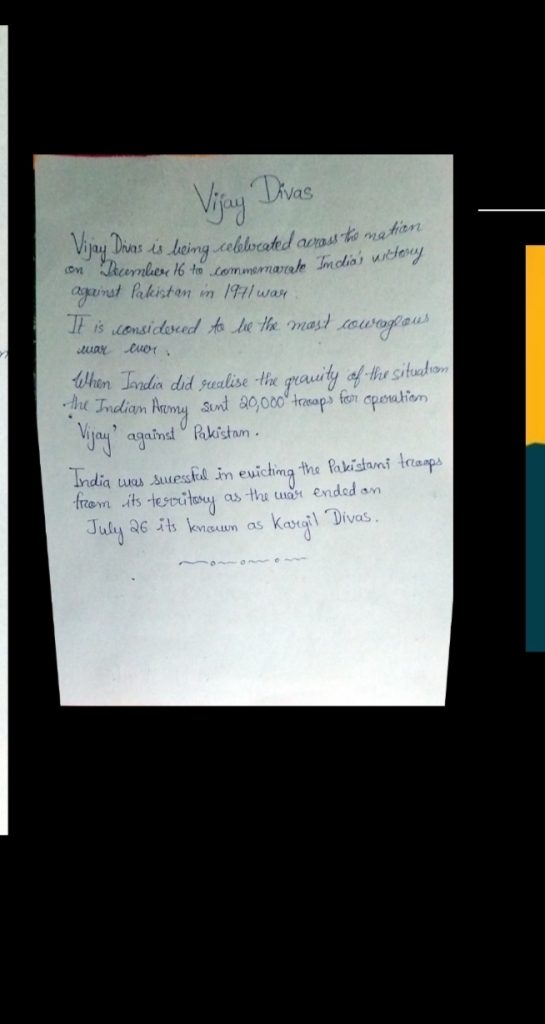 Vijay Divas
Vijay Divas is being celebrated across the nation
on December 16 to commemarate India's victory
against Pakistan in 1971 war.
It is considered to be the most courageous
war ever.
When India did realise the gravity of the situation
the Indian Army sent 20,000 troops for operation
'Vijay' against Pakistan.
India was sucessful in evicting the Pakistani troops
from its territory as the war ended on
July 26 its known as Kargil Divas.